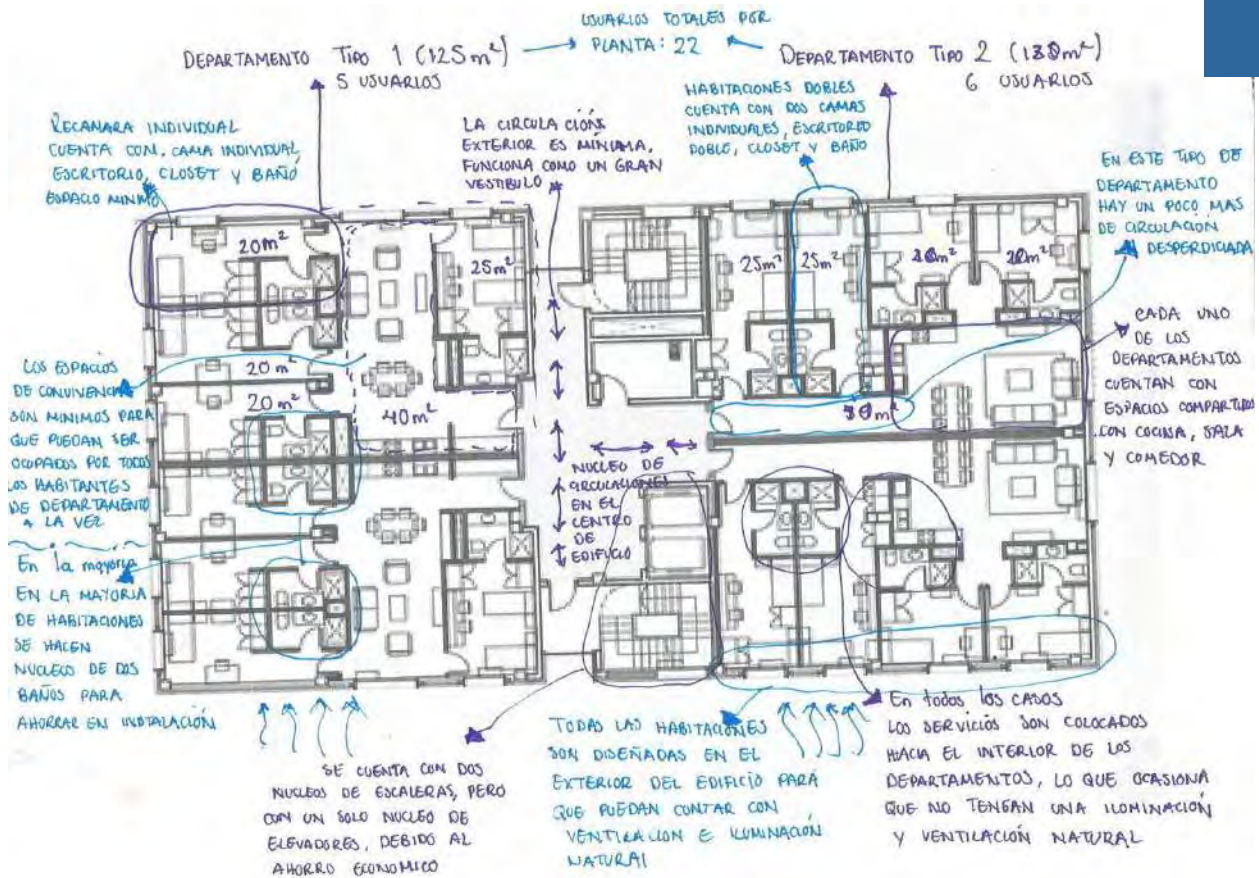 USUARIOS TOTALES POR
PLANTA: 22
DEPARTAMENTO TIPO 1 (125m²)
5 USUARIOS
DEPARTAMENTO TIPO 2 (130m²)
6 USUARIOS
RECAMARA INDIVIDUAL
CUENTA CON. CAMA INDIVIDUAL
ESCRITORIO, CLOSET Y BAÑO
ESPACIO MINIMO
LA CIRCULACIÓN
EXTERIOR ES MÍNIMA,
FUNCIONA COMO UN GRAN
VESTIBULO
HABITACIONES DOBLES
CUENTA CON DOS CAMAS
INDIVIDUALES, ESCRITORIO
DOBLE, CLOSET Y BAÑO
EN ESTE TIPO DE
DEPARTAMENTO
HAY UN POCO MAS
DE CIRCULACION
DESPERDICIADA
20m²
25m²
25m²
25m²
20m²
20m²
20 m²
20 m²
40m²
LOS ESPACIOS
DE CONVIVENCIA
SON MINIMOS PARA
QUE PUEDAN SER
OCUPADOS POR TODOS
LOS HABITANTES
DE DEPARTAMENTO
A LA VEZ
CADA UNO
DE LOS
DEPARTAMENTOS
CUENTAN CON
ESPACIOS COMPARTIDOS
CON COCINA, SALA
Y COMEDOR
NUCLEO DE
CIRCULACIONES
EN EL
CENTRO
DE
EDIFICIO
En la mayoria
EN LA MAYORIA
DE HABITACIONES
SE HACEN
NUCLEOS DE DOS
BAÑOS PARA
AHORRAR EN INSTALACIÓN
SE CUENTA CON DOS
NUCLEOS DE ESCALERAS, PERO
CON UN SOLO NUCLEO DE
ELEVADORES, DEBIDO AL
AHORRO ECONOMICO
TODAS LAS HABITACIONES
SON DISEÑADAS EN EL
EXTERIOR DEL EDIFICIO PARA
QUE PUEDAN CONTAR CON
VENTILACION E ILUMINACIÓN
NATURAL
En todos los casos
LOS SERVICIOS SON COLOCADOS
HACIA EL INTERIOR DE LOS
DEPARTAMENTOS, LO QUE OCASIONA
QUE NO TENGAN UNA ILOMINACIÓN
Y VENTILACIÓN NATURAL